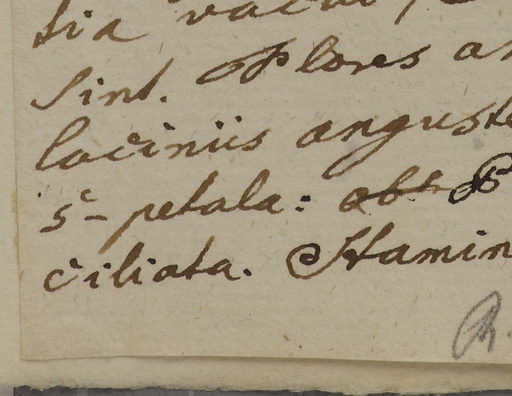 sia vacui,
sint. Flores an
laciniis anguste
5-petala: obt P
ciliata. Stamin
R.